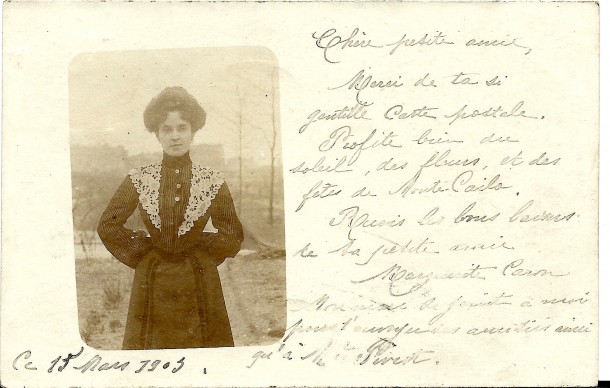 Chère petite amie,
Merci de ta si
gentille carte postale.
Profite bien du
soleil, des fleurs, et des
fêtes de Monte-Carlo.
Reçois les bons baisers
de ta petite amie
Marguerite Caron
de joint à moi
pour t'envoyer ses amitiés ainsi
qu'à M
Ce 15 Mars 1903.